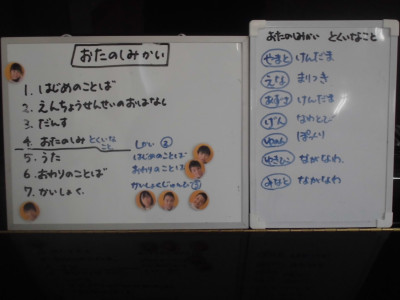 おたのしみかい
1. はじめのことば
2. えんちょうせんせいのおはなし
3. だんす
4. おたのしみ とくいなこと
5. うた
6. おわりのことば
7. かいしょく
しかい ②
はじめのことば
おわりのことば
かいしょくじゅんび③
おたのしみかい とくいなこと
やまと けんだま
えな まりつき
あずさ けんだま
げん なわとび
ぽっくり
ながなわ
みなと ながなわ